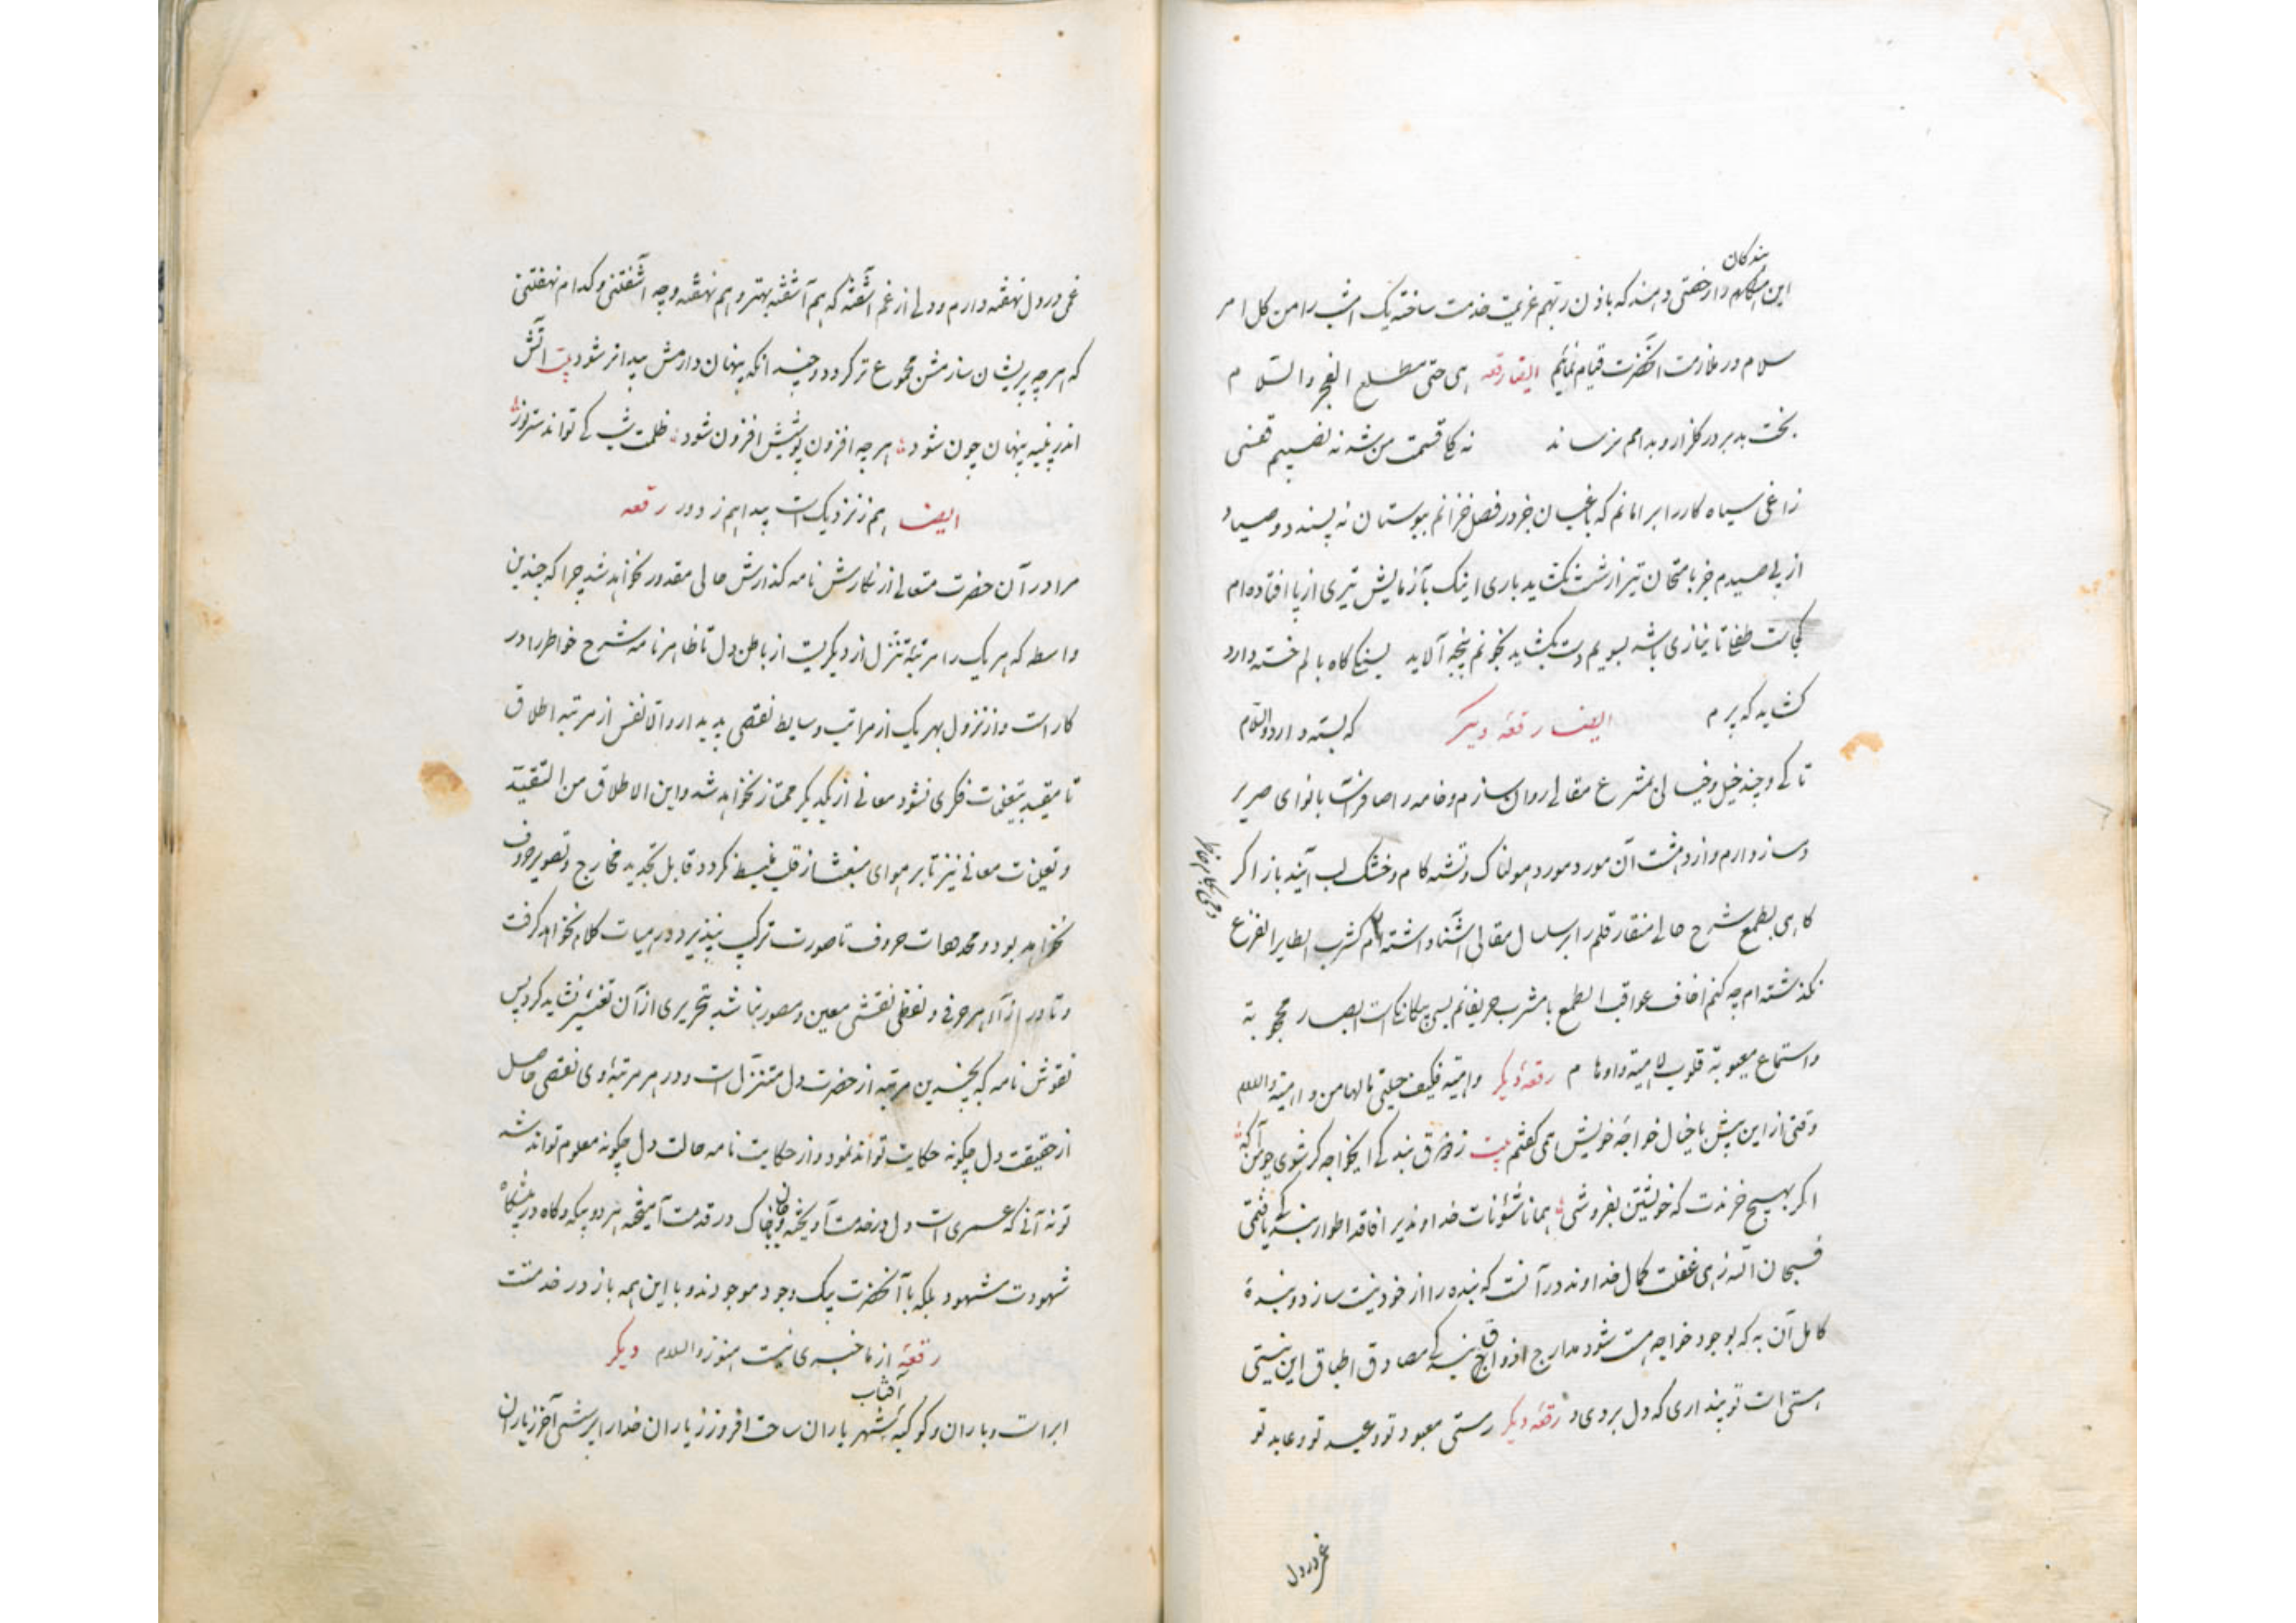 بندکان
این مکاهم دار خصتی دهند که باذن ربهم عزیمت خدمت ساخته یک امشب را من کل امر
سلام در ملازمت آنحضرت قیام نمایم ایضا رقعه هی حتی مطلع الفجر والسلام
بخت بد بر در کلزار و بدامم نرساند نه کل قسمت من شد نه نصیبم قفسی
زاغی سیاه کار را برا مانم که باغبان جز در فصل خزانم ببوستان نه پسندد و صیاد
از پی صیدم جز بامتحان تیر از شست نکشاید باری اینک بآزمایش تیری از پا افتاده‌ام
کجاست طفلی تا ببازی باشد بسویم دست بکشاید بخونم پنجه آلاید بسنکی کاه بالم خسته دارد
کشاید که پرم ایضا رقعه دیکر که بسته دارد والسلام
تا کی و چند خیل خیالی بمشرع مقالی روان سازم و خامه را صافرانست بانوای صریر
دمساز دارم و از دهشت آن مورد مورد هولناک و تشنه کام و خشک لب آیند باز اکر
کاهی بطمع شرح حالی منقار قلم را بر سلسال مقالی آشنا داشته‌ام کشرب الطایر الفزع
نکذشته‌ام چه کنم اخاف عواقب الطمع با مشرب حریفانم بس بیکانکی است ابصار محجوبة
واستماع معیوبة قلوب لاهیة واوهام رقعه دیکر واهیة فکیف حیلتی یا الهامن و اهیة والسلام
وقتی از این پیش با خیال خواجه خویش همی کفتم بیت ز فرق بندکی ایخواجه کر شوی چو من آکه
اکر بهیچ خرندت که خویشتن بفروشی همانا شئونات خداوند یر افاقد اطوار بندکی یافتمی
فسبحان الله زهی غفلت کمال خداوند در آنست که بنده را از خود نیست سازد و بندهٔ
کامل آن به که بوجود خواجه هست شود مدارج اذواق بندکی مصادق اطباق این نیستی
هستی است تو پنداری که دل بردی و رقعه دیکر رستی معبود تو و عبد تو و عابد تو
غمی در دل
غمی در دل نهفته دارم و دلی از غم آشفته که هم آشفته بهتر و هم نهفته و چه آشفتنی و کدام نهفتنی
که هر چه پریشان سازمش مجموع تر کردد و چندانکه پنهان دارمش پیداتر شود بیت آتش
اندر پنبه پنهان چون شود هر چه افزون پوشیش افزون شود ظلمت شب کی تواند ستر نور
ایضا هم ز نزدیک است پیدا هم ز دور رقعه
مرا در آن حضرت متعالی از نکارش نامه کذارش حالی مقدور نخواهد شد چرا که چندین
واسطه که هر یک را مرتبهٔ تنزل از دیکریست از باطن دل تا ظاهر نامه شرح خواطر را در
کار است و از نزول بهر یک از مراتب وسایط نقصی پدیدار والا نفس از مرتبه اطلاق
تا مقید بتعینات فکری نشود معانی از یکدیکر ممتاز نخواهد شد و این الاطلاق من التقید
و تعینات معانی نیز تا بر هوای منبعث از قلب منبسط نکردد قابل تجدید مخارج و تصویر حروف
نخواهد بود و محدهات حروف تا صورت ترکیب نپذیرد درهیات کلام نخواهد کرفت
و تا در ازآء هر حرفی و لفظی نقشی معین و مصور نباشد بتحریری از آن تعبیر نشاید کرد پس
نقوش نامه که بچندین مرتبه از حضرت دل متنزل است و در هر مرتبهٔ وی نقصی حاصل
از حقیقت دل چکونه حکایت تواند نمود و از حکایت نامه حالت دل چکونه معلوم تواند شد
تو نه آنی که عسری است دل در خدمت آویخته و جان خاک در قدمت آمیخته هر دو بیکه و کاه در پیشکاه
شهودت مشهود بلکه با آنحضرت بیک وجود موجودند و با این همه باز در خدمتت
رقعه از ما خبری نیست هنوز والسلام دیکر
آفتاب
ابر است و باران و کوکبهٔ شهریاران ساحت افروز زیاران خدا را ابر شبی آخر زیاران